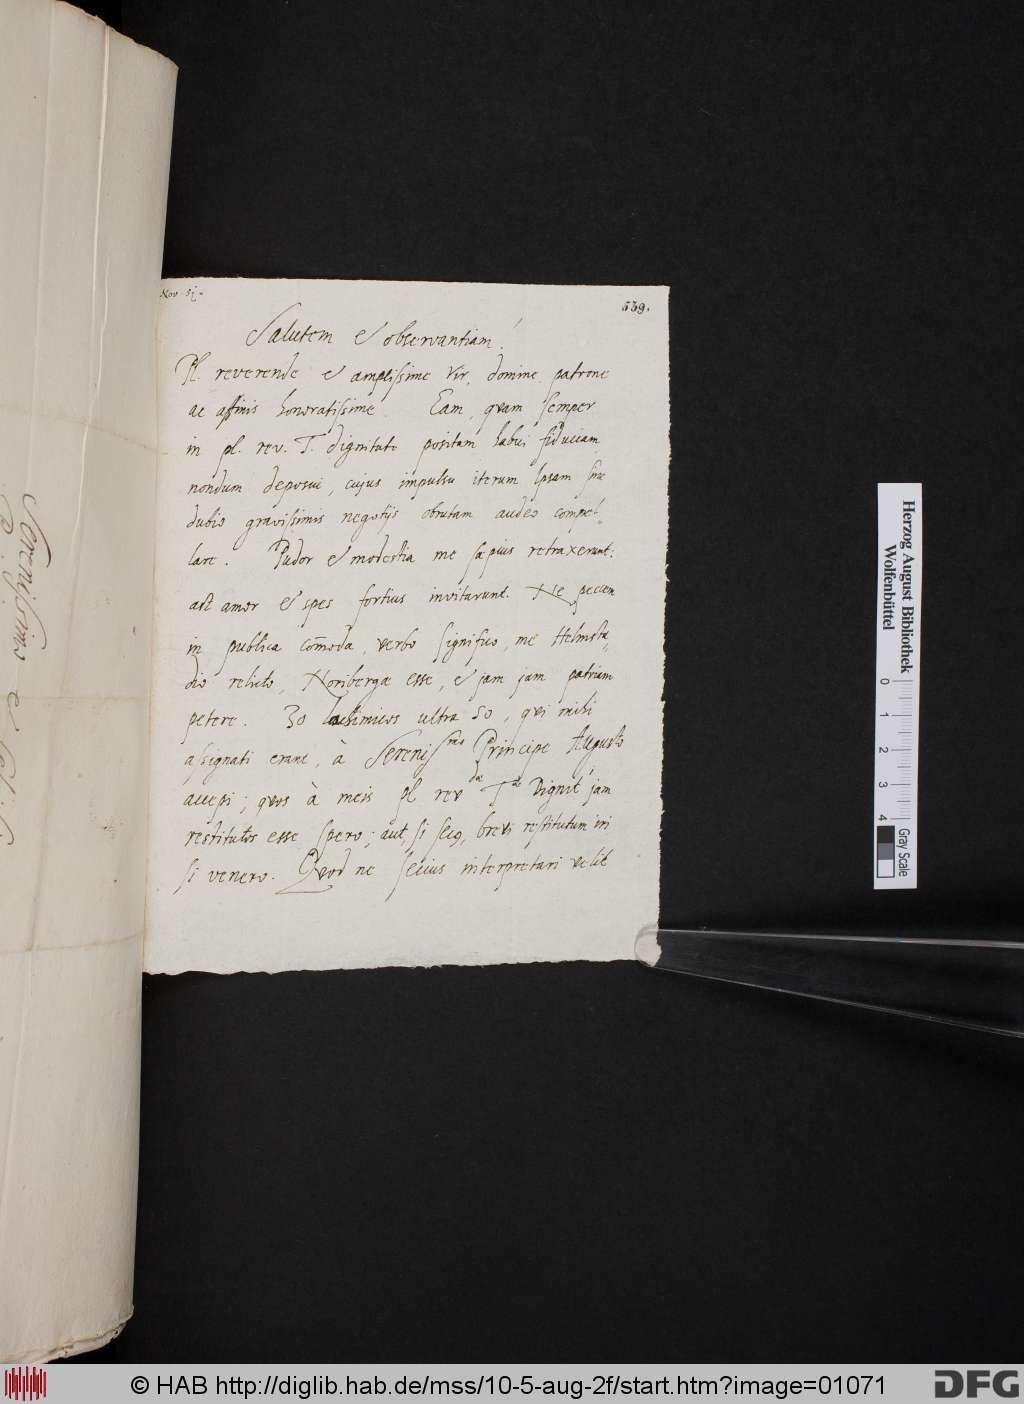 539.
Salutem & observantiam!
Pl. reverende & amplissime Vir, domine patrone
ac affinis honoratissime. Eam, quam semper
in pl. rev. T. dignitate positam habui fiduciam,
nondum deposui, cujus impulsu iterum Ipsam sine
dubio gravissimis negotijs obrutam audeo compel-
lare. Pudor & modestia me sæpius retraxerunt:
ast amor & spes fortius invitarunt. Ne peccem
in publica com̃oda, verbo significo, me Helmsta-
dio relicto, Noribergæ esse, & jam jam patriam
petere. 30 ultra 50, qui mihi
assignati erant, à Serenissmo Principe Augusto
accepi; quos à meis pl. revdæ Tæ Dignit. jam
restitutos esse spero; aut, si secq, brevi restitutum iri
si venero. Quod ne secius interpretari velit
Serenissimo &
Herzog August Bibliothek
Wolfenbüttel
0 1 2 3 4
Gray Scale
© HAB http://diglib.hab.de/mss/10-5-aug-2f/start.htm?image=01071
DFG